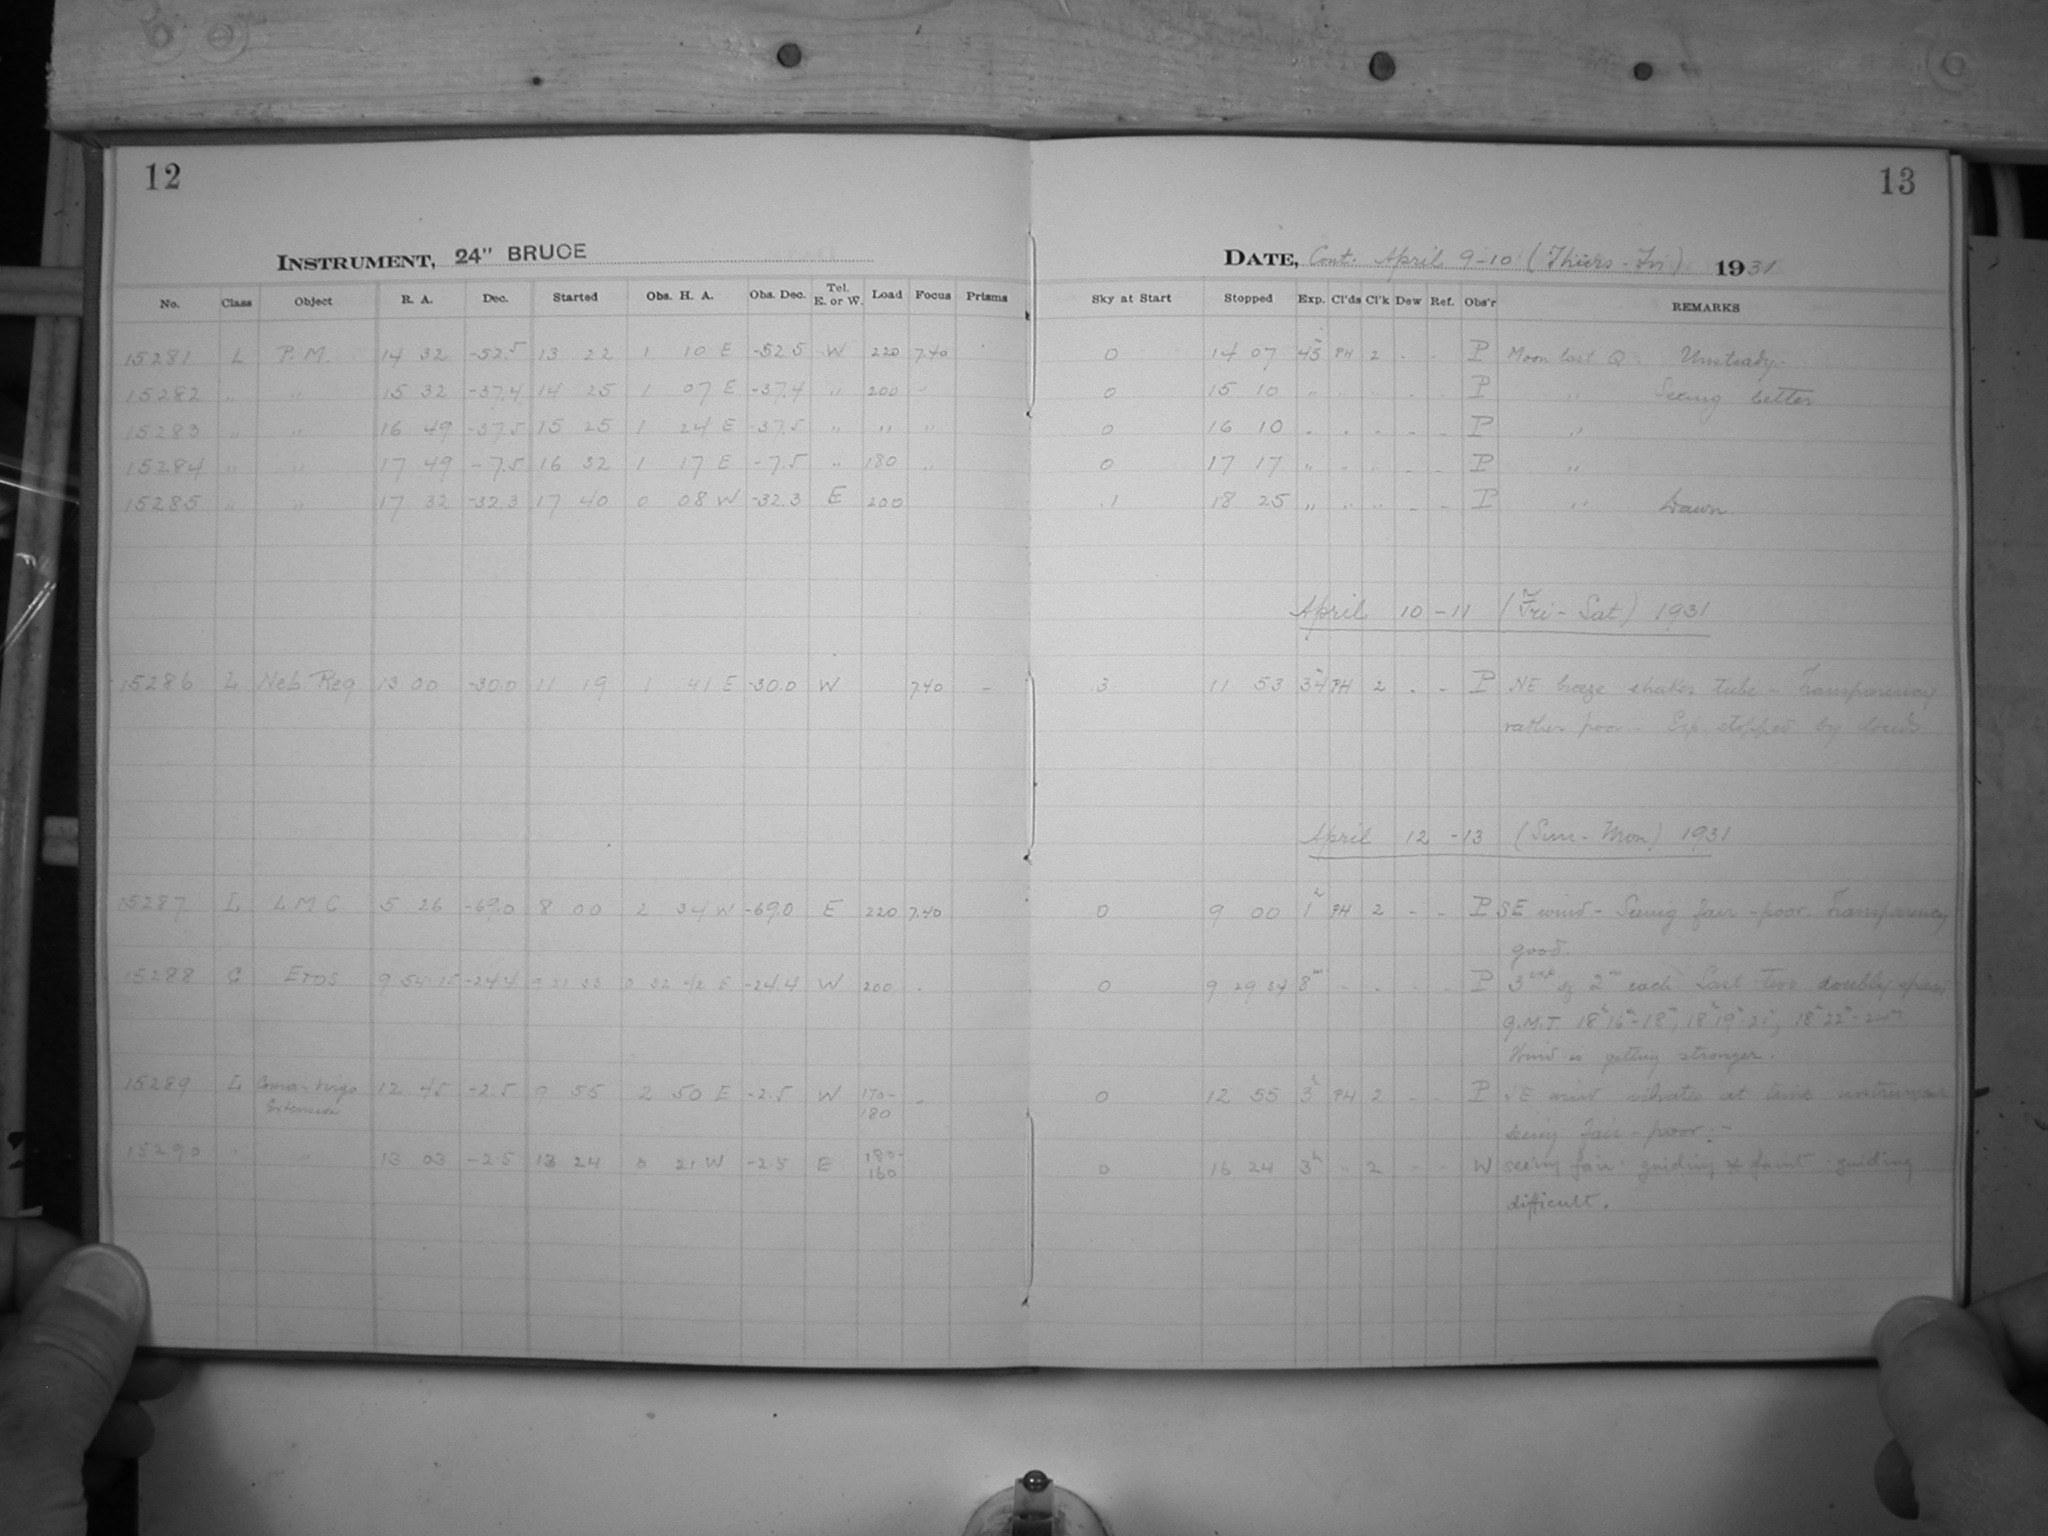 12
13
INSTRUMENT, 24" BRUCE
DATE, Cont. April 9-10 (Thurs-Fri) 1931
No. Class Object R. A. Dec. Started Obs. H. A. Obs. Dec. Tel. E. or W. Load Focus Prisms Sky at Start Stopped Exp. Cl'ds Cl'k Dew Ref. Obs'r REMARKS
15281 L P.M. 14 32 -52.5 13 22 1 10 E -52.5 W 220 7.40 - 0 14 07 45m PH 2 - - P Moon last Q. Unsteady-
15282 " " 15 32 -37.4 14 25 1 07 E -37.4 " 200 " 0 15 10 " " " - - P " Seeing better
15283 " " 16 49 -37.5 15 25 1 24 E -37.5 " " " 0 16 10 " " " - - P "
15284 " " 17 49 -7.5 16 32 1 17 E -7.5 " 180 " 0 17 17 " " " - - P "
15285 " " 17 32 -32.3 17 40 0 08 W -32.3 E 200 1 18 25 " " " - - P " Dawn
April 10-11 (Fri-Sat) 1931
15286 L Neb. Reg 13 00 -30.0 11 19 1 41 E -30.0 W 7.40 - 3 11 53 34m PH 2 - - P NE breeze shakes tube - Transparency
rather poor - Exp. stopped by clouds
April 12-13 (Sun-Mon) 1931
15287 L LMC 5 26 -69.0 8 00 2 34 W -69.0 E 220 7.40 0 9 00 1h PH 2 - - P SE wind - Seeing fair-poor. Transparency
good.
15288 C Eros 9 54 15 -24.4 9 21 33 0 32 42 E -24.4 W 200 - 0 9 29 34 8m - - - - P 3 exp of 2m each Last two doubly
G.M.T 18h16m-18m, 18h19m-21m, 18h22m-24m
Wind is getting stronger.
15289 L Coma-Virgo Extension 12 45 -2.5 9 55 2 50 E -2.5 W 170-180 - 0 12 55 3h PH 2 - - P SE wind vibrates at time instrument
seeing fair-poor.-
15290 " " 13 03 -2.5 13 24 0 21 W -2.5 E 180-160 0 16 24 3h - 2 - - W seeing fair guiding * faint guiding
difficult.